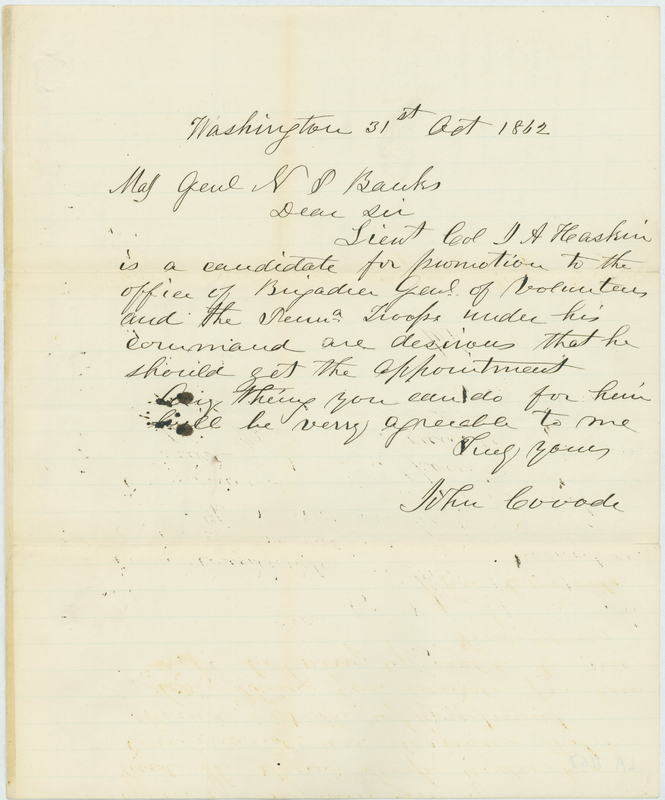 Washington 31st Oct 1862
Maj Genl N P Banks
Dear Sir
Lieut Col J A Haskin
is a candidate for promotion to the
office of Brigadier Genl. of Volunteers
and the Penna Troops under his
command are desirous that he
should get the appointment
Any thing you can do for him
will be very agreeable to me
Truly yours
John Covode